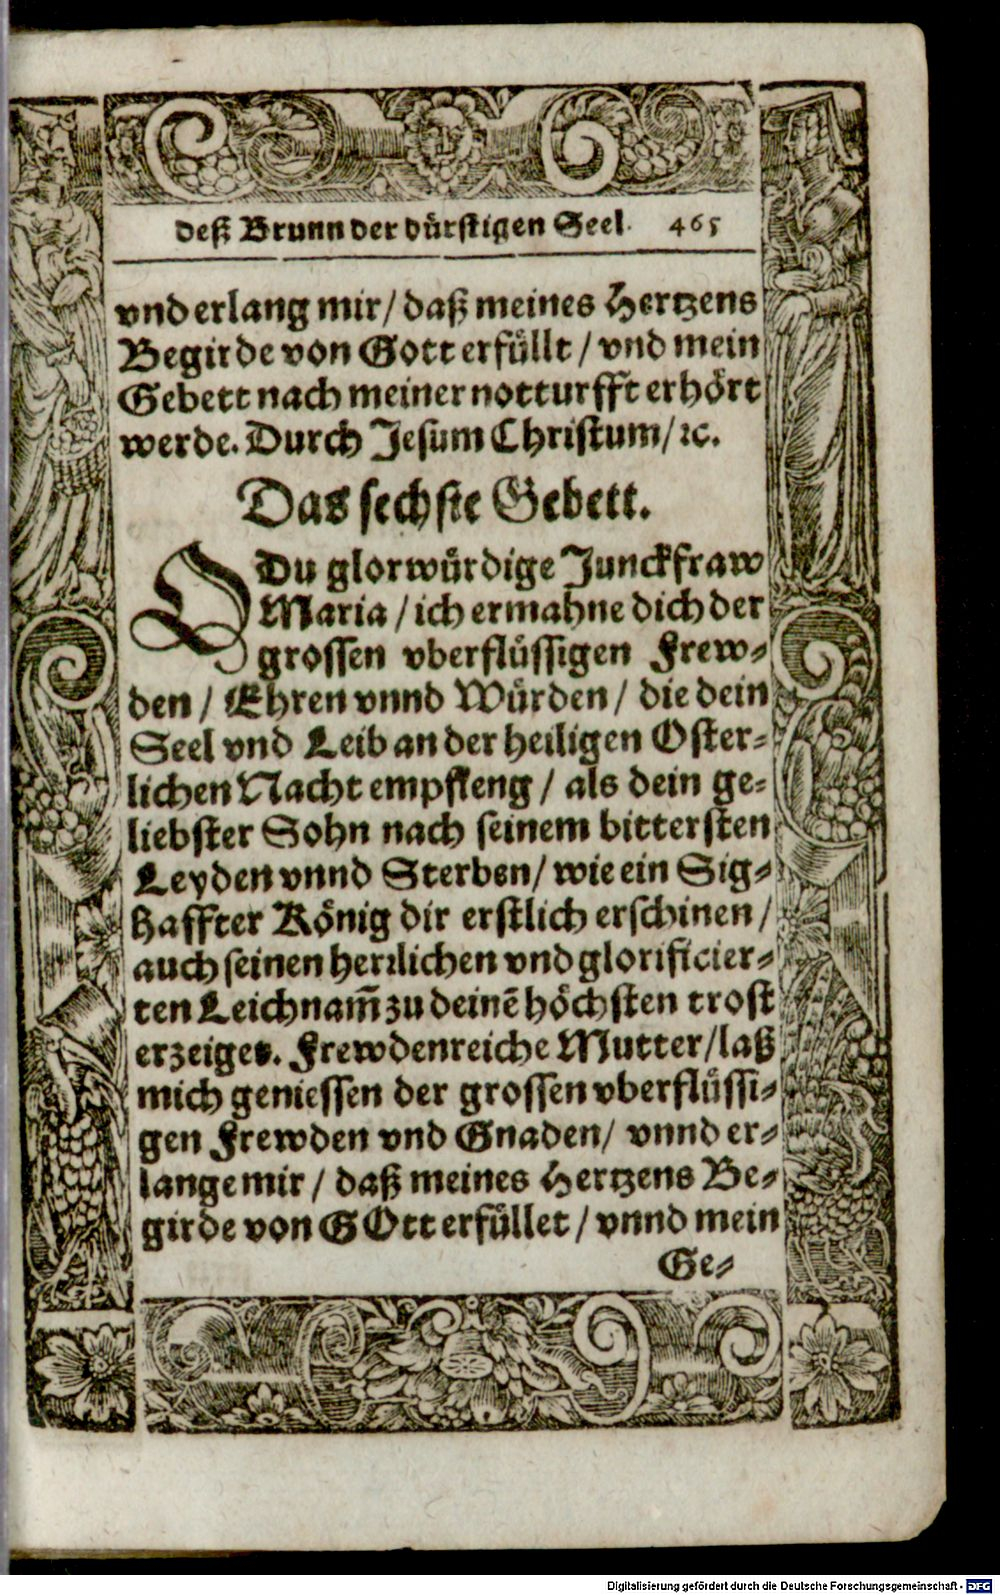 deß Brunn der dürstigen Seel. 465
vnd erlang mir / daß meines Hertzens
Begirde von Gott erfüllt / vnd mein
Gebett nach meiner notturfft erhört
werde. Durch Jesum Christum / ꝛc.
Das sechste Gebett.
O Du glorwürdige Junckfraw
Maria / ich ermahne dich der
grossen vberflüssigen Frew⸗
den / Ehren vnnd Würden / die dein
Seel vnd Leib an der heiligen Oster⸗
lichen Nacht empfieng / als dein ge⸗
liebster Sohn nach seinem bittersten
Leyden vnnd Sterben / wie ein Sig⸗
haffter König dir erstlich erschinen /
auch seinen herꝛlichen vnd glorificier⸗
ten Leichnam̃ zu deinẽ höchsten trost
erzeiget. Frewdenreiche Mutter / laß
mich geniessen der grossen vberflüssi⸗
gen Frewden vnd Gnaden / vnnd er⸗
lange mir / daß meines Hertzens Be⸗
girde von GOtt erfüllet / vnnd mein
Ge⸗
Digitalisierung gefördert durch die Deutsche Forschungsgemeinschaft - DFG